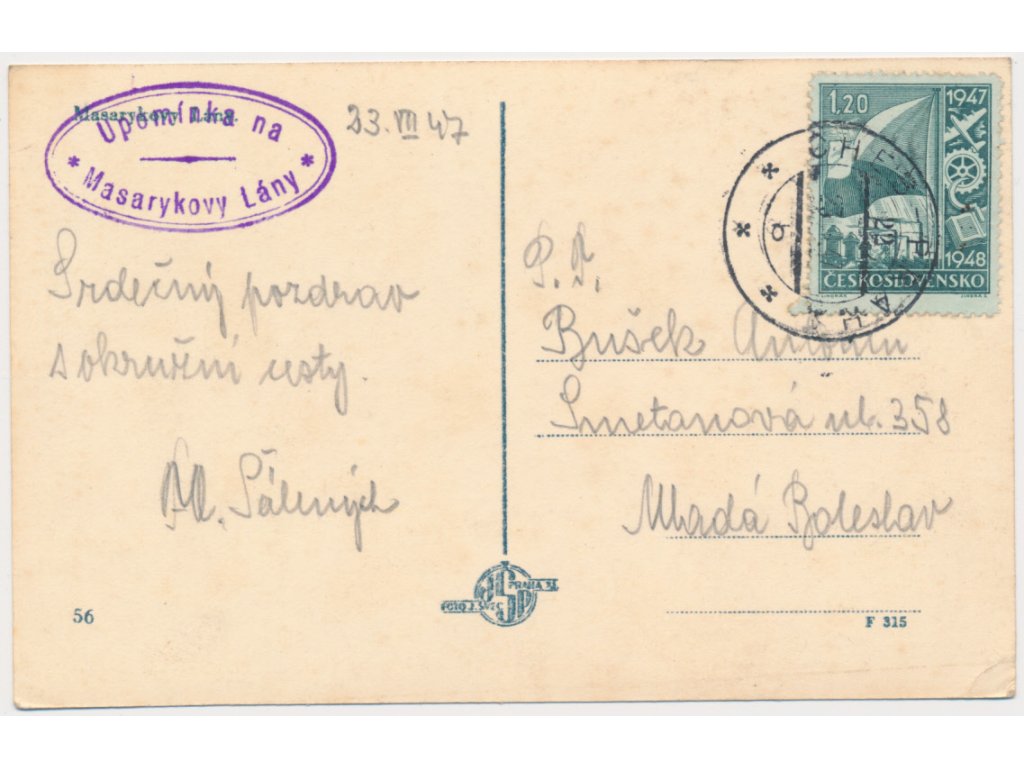 Masarykovy Lány.
Upomínka na
* Masarykovy Lány *
23.VII 47
Srdečný pozdrav
s okružní cesty.
Sálených
56
FOTO J. ŠVEC PRAHA XI.
1.20
1947
1948
ČESKOSLOVENSKO
P. T.
Bušek Antonín
Smetanová ul. 358
Mladá Boleslav
F 315